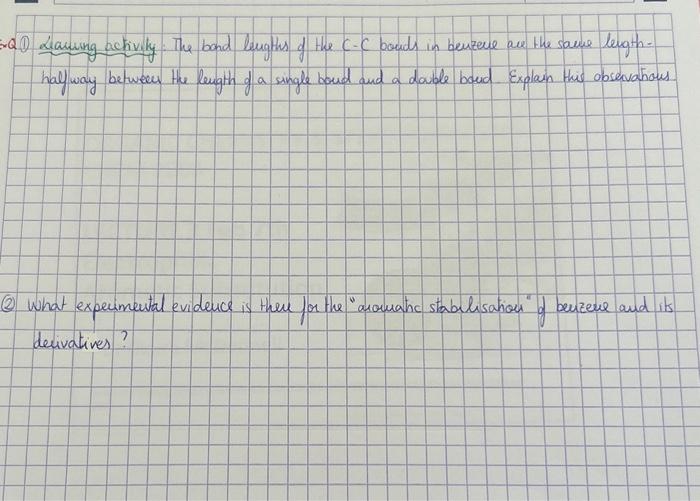 Q① Learning activity: The bond lengths of the C-C bonds in benzene are the same length-
halfway between the length of a single bond and a double bond. Explain this observations
② What experimental evidence is there for the "aromatic stabilisation" of benzene and its
derivatives?